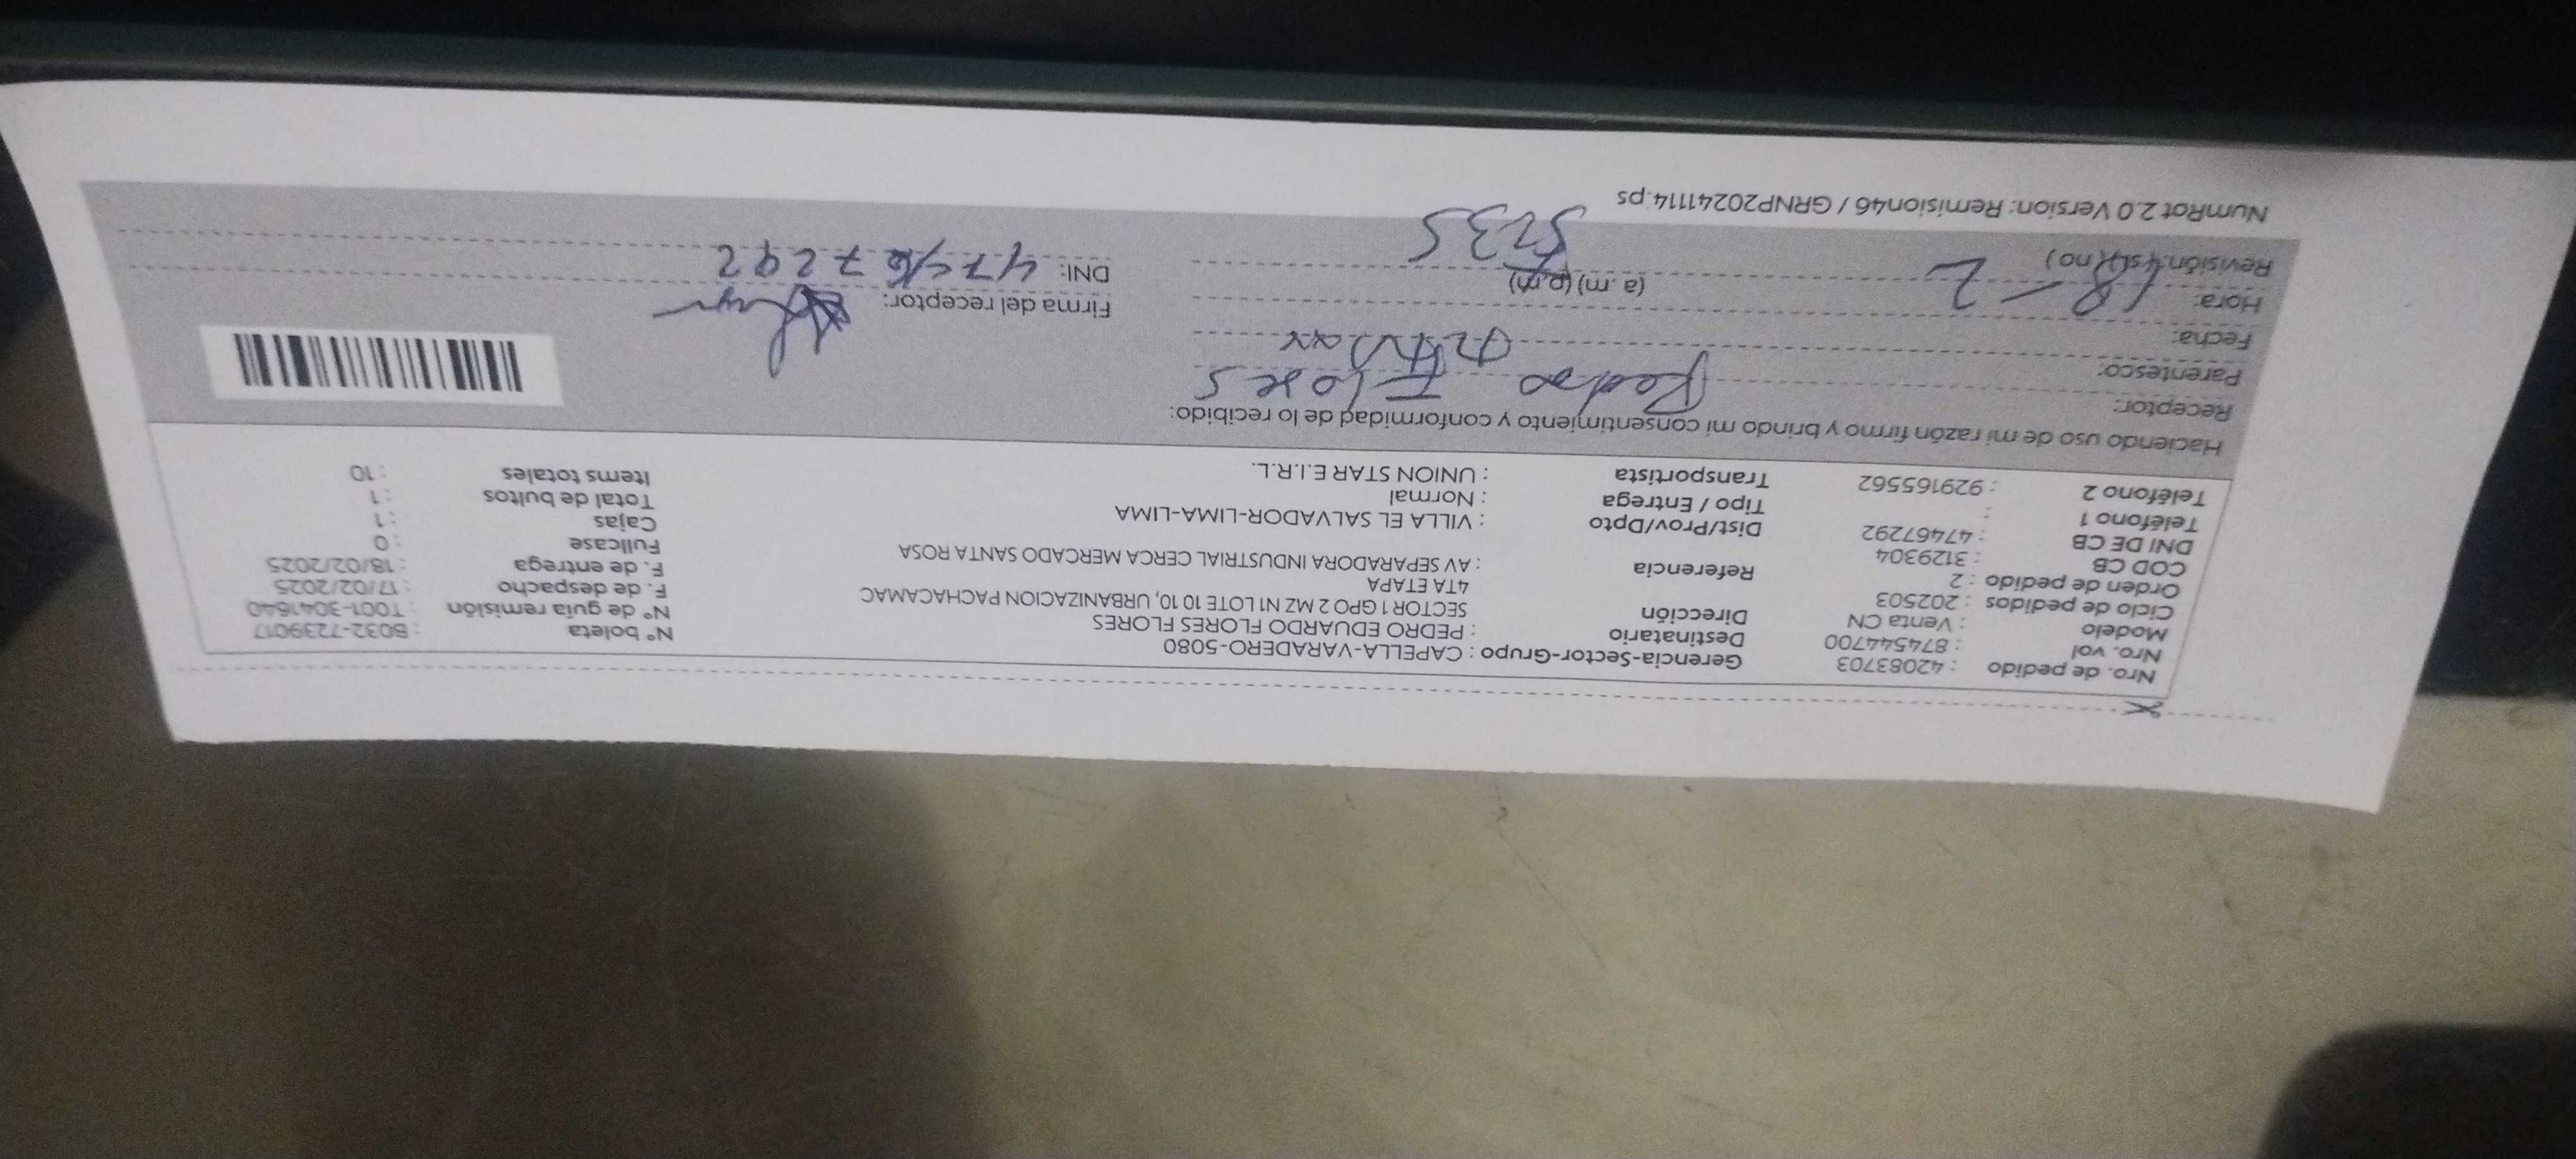 Nro. de pedido : 42083703 Gerencia-Sector-Grupo : CAPELLA-VARADERO-5080 N° boleta : B032-7239017
Nro. vol : 874544700 Destinatario : PEDRO EDUARDO FLORES FLORES N° de guía remisión : T001-3041640
Modelo : Venta CN Dirección SECTOR 1 GPO 2 MZ N1 LOTE 10 10, URBANIZACION PACHACAMAC F. de despacho : 17/02/2025
Ciclo de pedidos : 202503 4TA ETAPA F. de entrega : 18/02/2025
Orden de pedido : 2 Referencia : AV SEPARADORA INDUSTRIAL CERCA MERCADO SANTA ROSA Fullcase : 0
COD CB : 3129304 Dist/Prov/Dpto : VILLA EL SALVADOR-LIMA-LIMA Cajas : 1
DNI DE CB : 47467292 Tipo / Entrega : Normal Total de bultos : 1
Teléfono 1 : Transportista : UNION STAR E.I.R.L. Items totales : 10
Teléfono 2 : 929165562
Haciendo uso de mi razón firmo y brindo mi consentimiento y conformidad de lo recibido:
Receptor: Pedro Flores
Parentesco:
Fecha:
Hora: 18-2 (a.m) (p.m) Firma del receptor:
Revisión: (si) (no) 5235 DNI: 47467292
NumRot 2.0 Version: Remision46 / GRNP20241114.ps